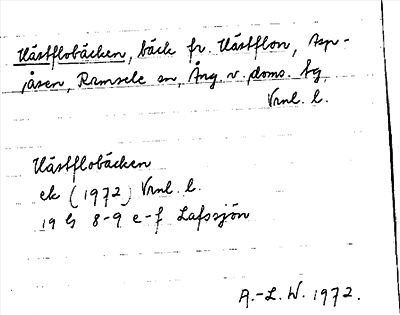 Västflobäcken, bäck fr. Västflon, Asp-
jåsen, Ramsele sn, Ång. v. doms. tg
Vrnl. l.
Västflobäcken
ek (1972) Vrnl. l.
19 G 8-9 e-f Lafssjön
A.-L. W. 1972.